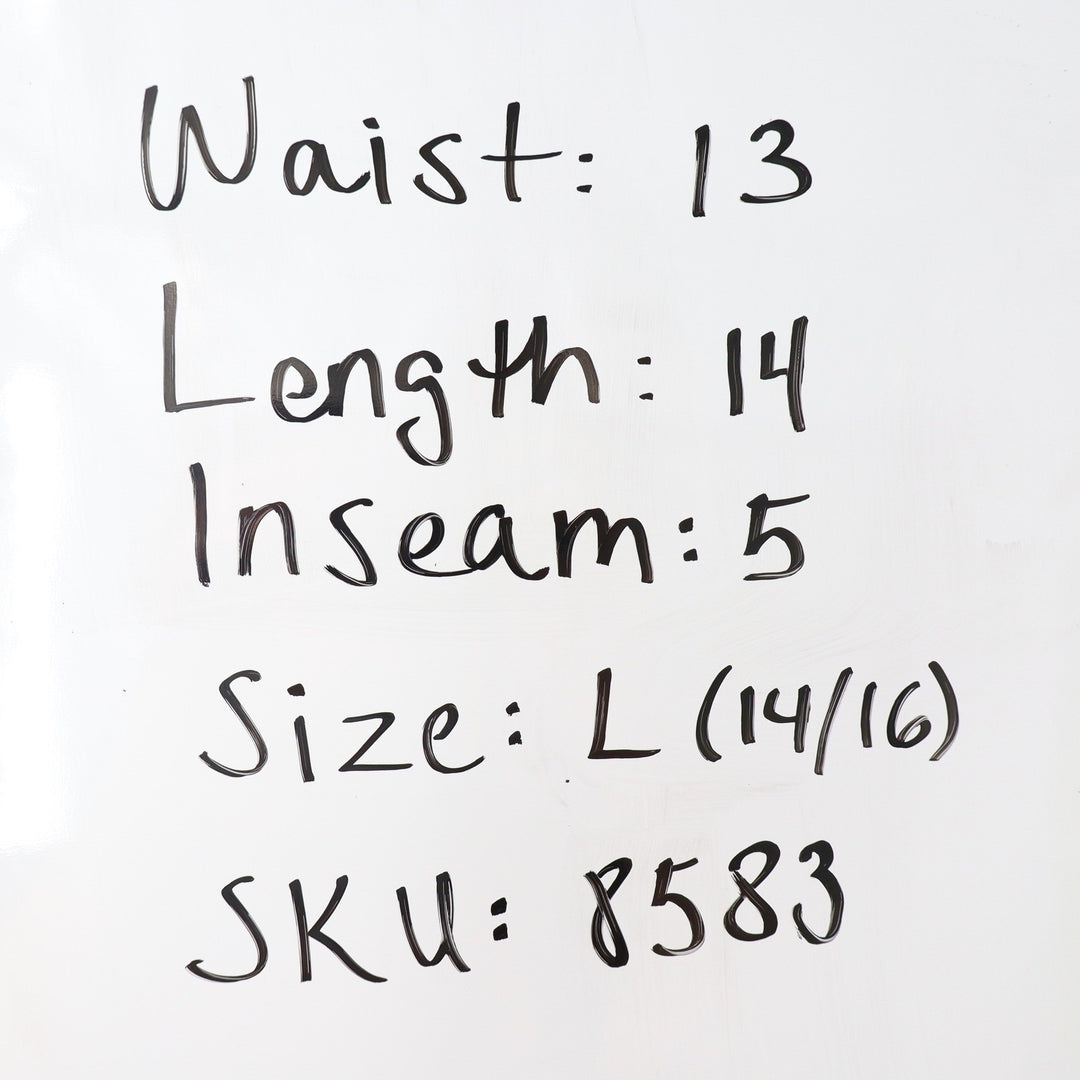 Waist: 13
Length: 14
Inseam: 5
Size: L (14/16)
SKU: 8583